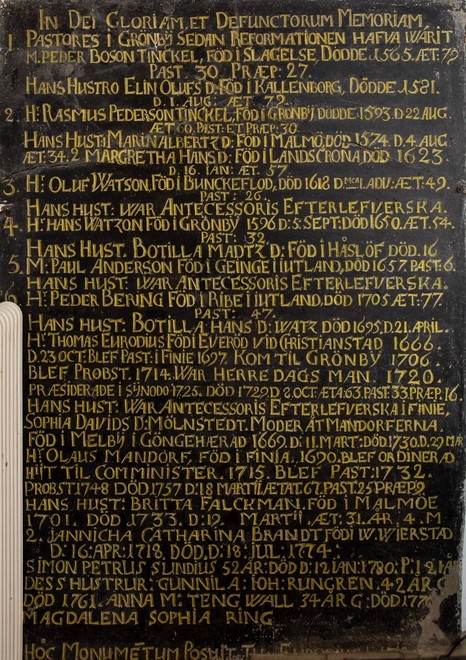 IN DEI GLORIAM, ET DEFUNCTORUM MEMORIAM,
1 PASTORES I GRÖNBŸ SEDAN REFORMATIONEN HAFVA WARIT
M. PEDER BOSON TINCKEL, FÖD I SLAGELSE, DÖDDE. 1565. ÆT: 79.
PAST. 30. PRÆP: 27.
HANS HUSTRO ELIN OLUFS D: FÖD I KALLENBORG, DÖDDE 1581.
D. 1. AUG: ÆT. 79.
2. Hr: RASMUS PEDERSON TINCKEL, FÖD I GRÖNBŸ, DÖDDE 1593. D 22 AUG.
ÆT 60. PAST: ET PRÆP: 30
HANS HUST: 1 MARIN ALBERTZ D: FÖD I MALMÖ, DÖD 1574. D. 4. AUG.
ÆT: 34. 2 MARGRETHA HANS D: FÖD I LANDSCRONA, DÖD 1623.
D. 16. IAN: ÆT. 57.
3. Hr: OLUF WATSON, FÖD I BUNCKEFLOD, DÖD 1618 D. ADV: ÆT: 49.
PAST: 26.
HANS HUST: WAR ANTECESSORIS EFTERLEFVERSKA.
4. Hr: HANS WATZON FÖD I GRÖNBY 1596. D: 5: SEPT: DÖD 1650 ÆT. 54.
PAST: 32.
HANS HUST. BOTILLA MADTZ D: FÖD I HÅSLÖF DÖD. 16
5. M: PAUL ANDERSON FÖD I GEINGE I IUTLAND, DÖD 1657. PAST: 6.
HANS HUST: WAR ANTECESSORIS EFTERLEFVERSKA.
6 Hr: PEDER BERING FÖD I RIBE I IUTLAND, DÖD 1705 ÆT: 77.
PAST: 47.
HANS HUST: BOTILLA HANS D: WATZ DÖD 1695, D. 21. APRIL.
Hr: THOMAS EURODIUS FÖD I EVERÖD VID CHRISTIANSTAD 1666.
D. 23 OCT: BLEF PAST: I FINIE 1697. KOM TIL GRÖNBY 1706
BLEF PROBST. 1714. WAR HERRE DAGS MAN. 1720.
PRÆSIDERADE I SŸNODO 1725. DÖD 1729. D 8. OCT: ÆTA. 63. PAST: 33 PRÆP. 16.
HANS HUST: WAR ANTECESSORIS EFTERLEFVERSKA I FINIE,
SOPHIA DAVIDS D: MÖLNSTEDT. MODER ÅT MANDORFERNA.
FÖD I MELBŸ I GÖNGEHÆRAD 1669. D: 11. MART: DÖD 1730. D. 29 MAR
Hr: OLAUS MANDORF, FÖD I FINIA. 1690. BLEF ORDINERAD
HŸT TIL COMMINISTER. 1715. BLEF PAST: 1732.
PROBST. 1748 DÖD 1757 D: 18 MARTII ÆTAT: 67. PAST: 25 PRÆP: 9.
HANS HUST: BRITTA FALCKMAN. FÖD I MALMÖE
1701. DÖD. 1733. D: 19. MARTII, ÆT: 31. ÅR. 4. M
2. JANNICHA CATHARINA BRANDT FÖD I W. WIERSTAD
D: 16: APR: 1718, DÖD, D: 18: JUL. 1774:
SIMON PETRUS SUNDIUS 52 ÅR: DÖD D: 12 IAN: 1780: P: 1
DESS HUSTRUR: GUNNILA: IOH: RUNGREN. 42 ÅR G
DÖD 1761. ANNA M: TENGWALL 34 ÅR G: DÖD 177
MAGDALENA SOPHIA RING
HOC MONUMĒTUM POSUIT